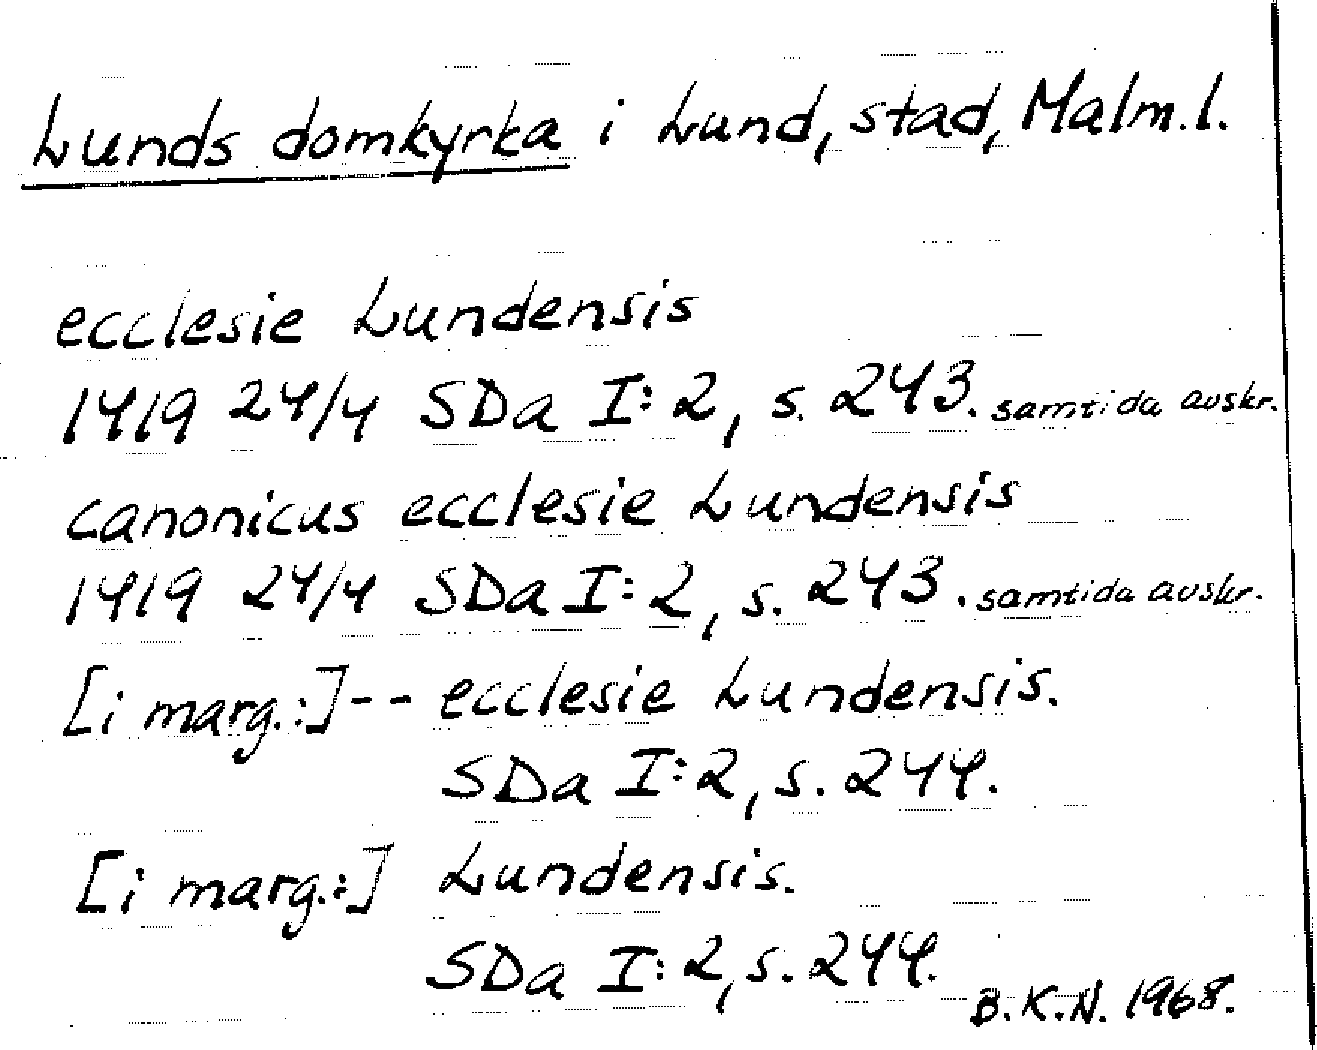 Lunds domkyrka i Lund, stad, Malm.l.
ecclesie Lundensis
1419 24/4 SDa I:2, s. 243. samtida avskr.
canonicus ecclesie Lundensis
1419 24/4 SDa I:2, s. 243. samtida avskr.
[i marg.:]-- ecclesie Lundensis.
SDa I:2, s. 244.
[i marg.:] Lundensis.
SDa I:2, s. 244.
B.K.N. 1968.